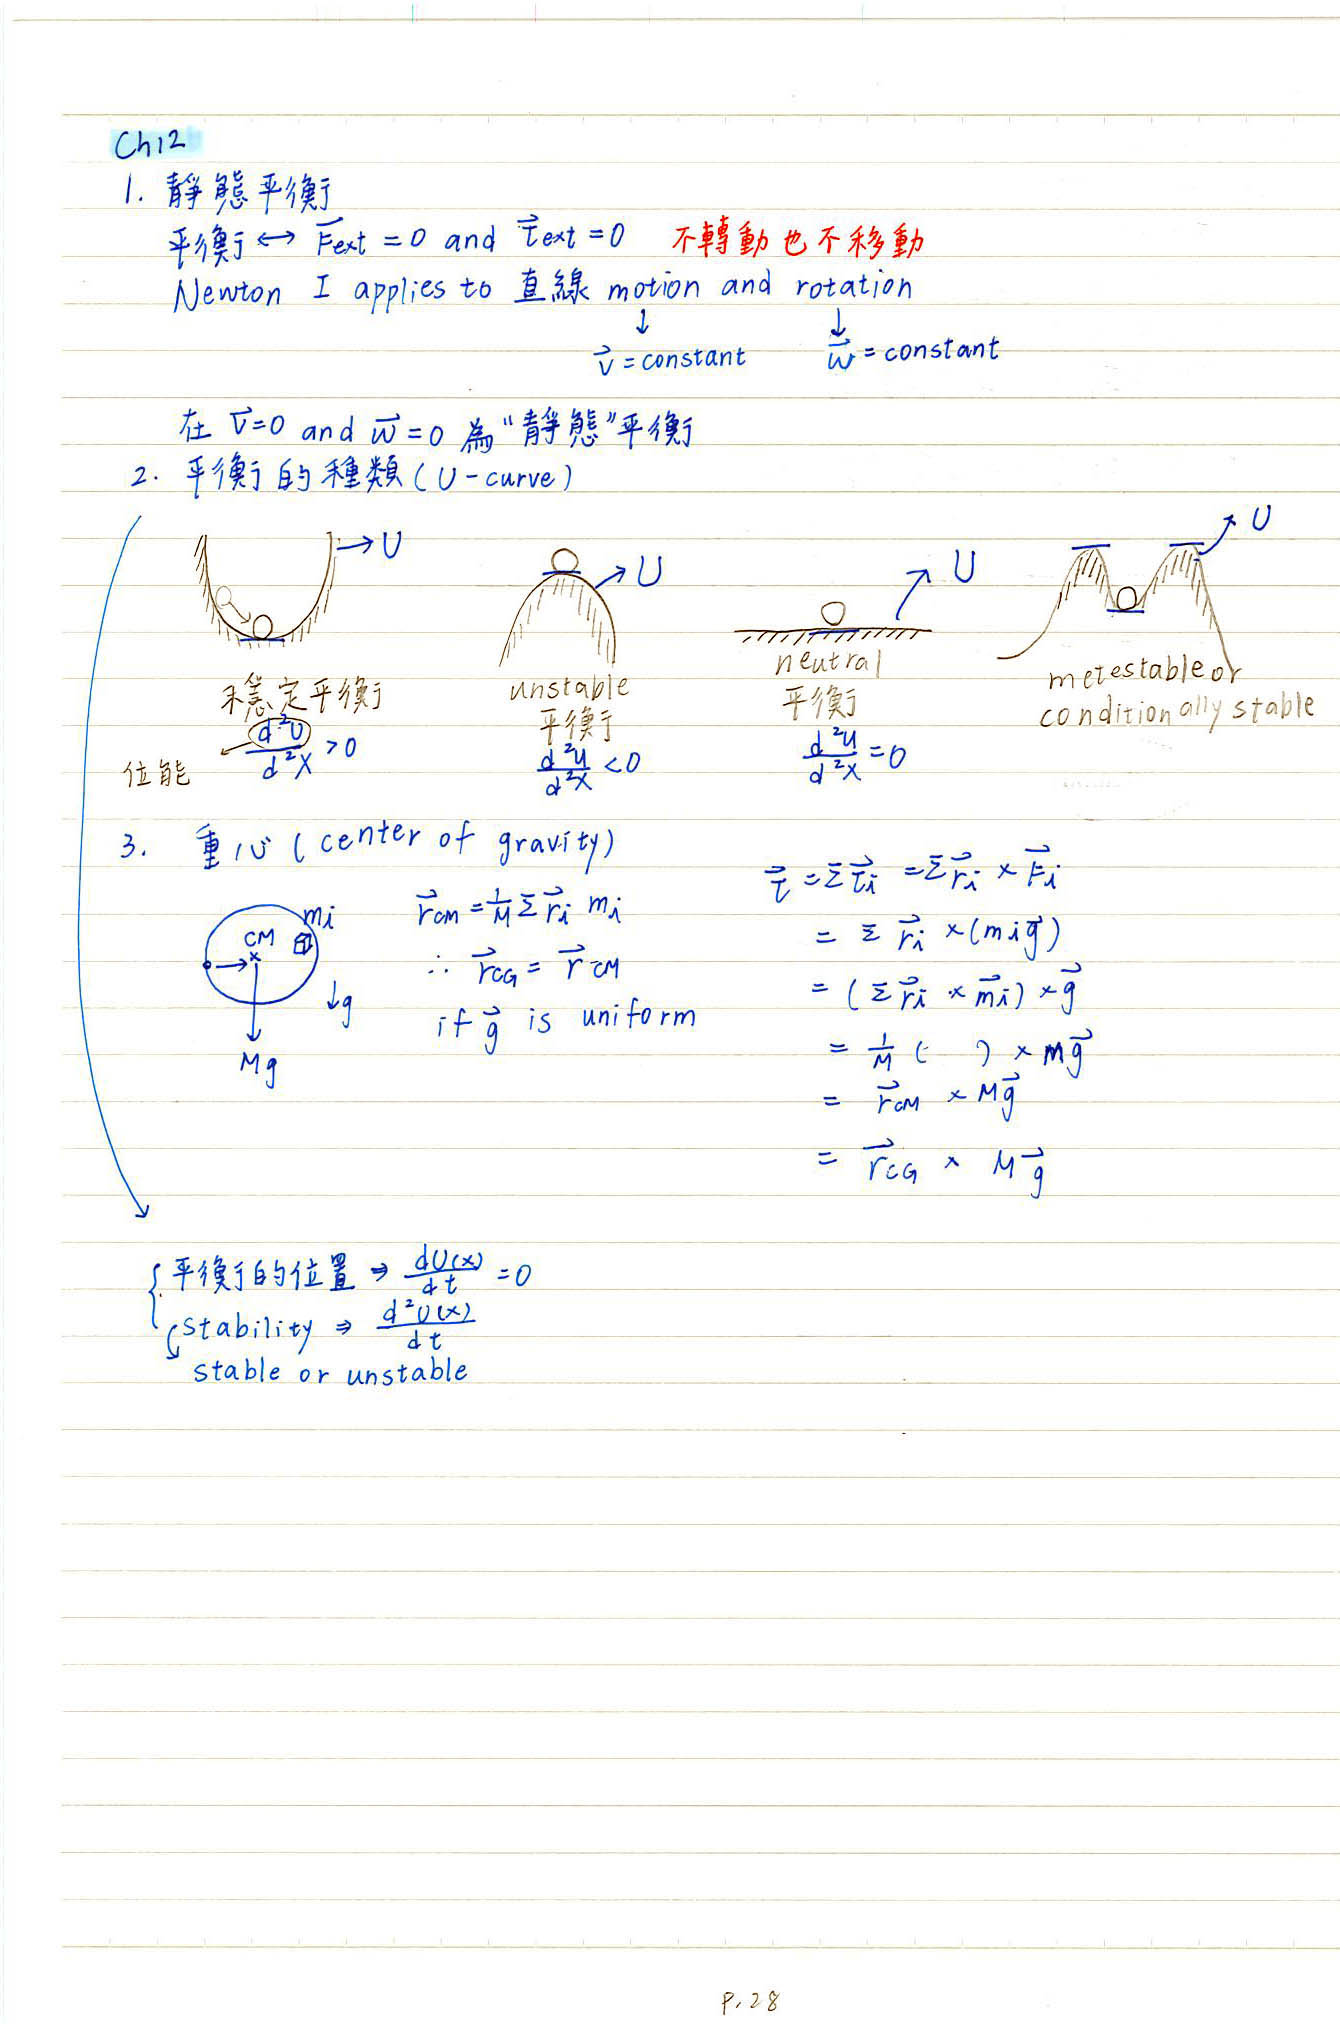 Ch12
1. 靜態平衡
平衡 ↔ F⃗ext = 0 and τ⃗ext = 0 不轉動也不移動
Newton I applies to 直線 motion and rotation
↓ ↓
v⃗ = constant w⃗ = constant
在 v⃗=0 and w⃗=0 為"靜態"平衡
2. 平衡的種類(U-curve)
→ U
→ U
→ U
→ U
穩定平衡
d²U/d²x > 0
位能
unstable
平衡
d²U/d²x < 0
neutral
平衡
d²U/d²x = 0
metestable or
conditionally stable
3. 重心(center of gravity)
mi
CM
×
↓g
Mg
r⃗CM = 1/M Σ r⃗i mi
∴ r⃗CG = r⃗CM
if g⃗ is uniform
τ⃗ = Στ⃗i = Σr⃗i × F⃗i
= Σ r⃗i × (mi g⃗)
= (Σ r⃗i × m⃗i) × g⃗
= 1/M ( ) × Mg⃗
= r⃗CM × Mg⃗
= r⃗CG × Mg⃗
平衡的位置 ⇒ dU(x)/dt = 0
stability ⇒ d²U(x)/dt
stable or unstable
P.28